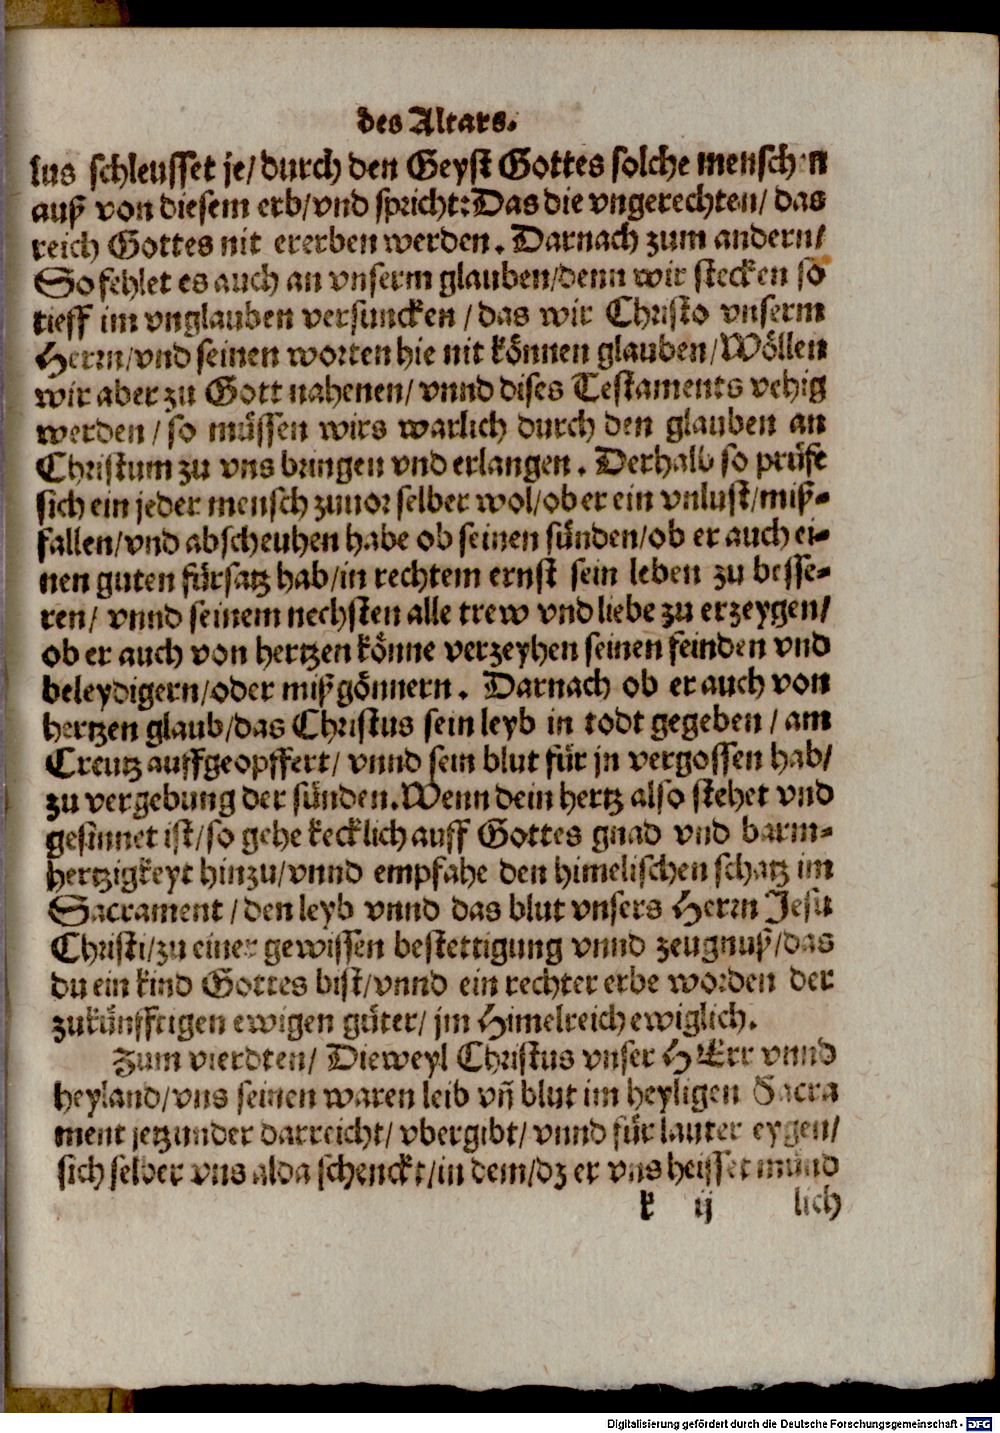 des Altars.
lus schleusset je/ durch den Geyst Gottes solche menschen
auß von diesem erb/ vnd spricht: Das die vngerechten/ das
reich Gottes nit ererben werden. Darnach zum andern/
So fehlet es auch an vnserm glauben/ denn wir stecken so
tieff im vnglauben versuncken / das wir Christo vnserm
Herrn/ vnd seinen worten hie nit können glauben/ Wöllen
wir aber zu Gott nahenen/ vnnd dises Testaments vehig
werden / so müssen wirs warlich durch den glauben an
Christum zu vns bringen vnd erlangen. Derhalb so prüfe
sich ein jeder mensch zuuor selber wol/ ob er ein vnlust/ miß-
fallen/ vnd abscheuhen habe ob seinen sünden/ ob er auch ei-
nen guten fürsatz hab/ in rechtem ernst sein leben zu besse-
ren/ vnnd seinem nechsten alle trew vnd liebe zu erzeygen/
ob er auch von hertzen könne verzeyhen seinen feinden vnd
beleydigern/ oder mißgönnern. Darnach ob er auch von
hertzen glaub/ das Christus sein leyb in todt gegeben / am
Creutz auffgeopffert/ vnnd sein blut für jn vergossen hab/
zu vergebung der sünden. Wenn dein hertz also stehet vnd
gesinnet ist/ so gehe kecklich auff Gottes gnad vnd barm-
hertzigkeyt hinzu/ vnnd empfahe den himelischen schatz im
Sacrament / den leyb vnnd das blut vnsers Herrn Jesu
Christi/ zu einer gewissen bestettigung vnnd zeugnuß/ das
du ein kind Gottes bist/ vnnd ein rechter erbe worden der
zukünfftigen ewigen güter/ jm Himelreich ewiglich.
Zum vierdten/ Dieweyl Christus vnser HErr vnnd
heyland/ vns seinen waren leib vñ blut im heyligen Sacra
ment jetzunder darreicht/ vbergibt/ vnnd für lauter eygen/
sich selber vns alda schenckt/ in dem/ dz er vns heisset mund
k ij lich
Digitalisierung gefördert durch die Deutsche Forschungsgemeinschaft - DFG